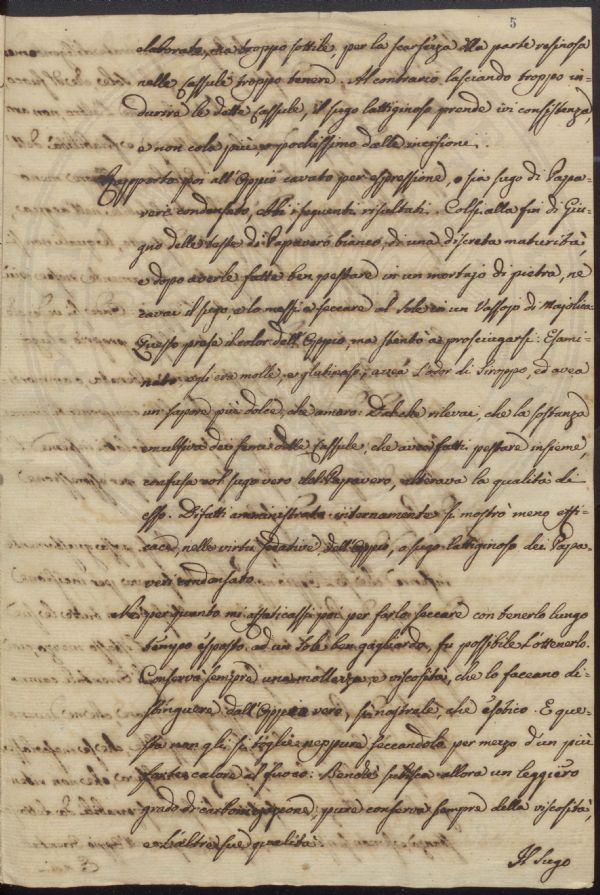 5
elaborate, era troppo sottile, per la scarsezza della parte resinosa
nelle Cassule troppo tenere. Al contrario lasciando troppo in-
durire le dette Cassule, il sugo lattiginoso prende ivi consistenza,
e non cola più, o pochissimo dalle incisioni.
Rapporto poi all'Oppio cavato per espressione, o sia sugo di Papa-
veri condensato, ebbi i seguenti risultati. Colsi alla fin di Giu-
gno delle teste di Papavero bianco, di una discreta maturità,
e dopo averle fatte ben pestare in un mortajo di pietra, ne
cavai il sugo, e lo messi a seccare al Sole in un Vassojo di Majolica.
Questo prese il color dell'Oppio, ma stentò a prosciugarsi: Esami-
nato egli era molle, e glutinoso; avea l'odor di Siroppo, ed avea
un sapore più dolce, che amaro: Dal che rilevai, che la sostanza
emulsiva dei semi delle Cassule, che avea fatti pestare insieme,
confusa col sugo vero del Papavero, alterava la qualità di
esso. Difatti amministrato internamente si mostrò meno effi-
cace, nelle virtù sedative dell'Oppio, o sugo lattiginoso dei Papa-
veri condensato.
Nè per quanto mi affaticassi poi per farlo seccare con tenerlo lungo
tempo esposto ad un Sole ben gagliardo, fu possibile l'ottenerlo.
Conserva sempre una mollezza, e viscosità, che lo faceano di-
stinguere dall'Oppio vero, sì nostrale, che esotico. E que-
sta non gli si toglie neppure seccandolo per mezzo d'un più
forte calore al fuoco: Benchè subisca allora un leggiero
grado di carbonizzazione, pure conserva sempre della viscosità,
e l'altre sue qualità.
Il Sugo